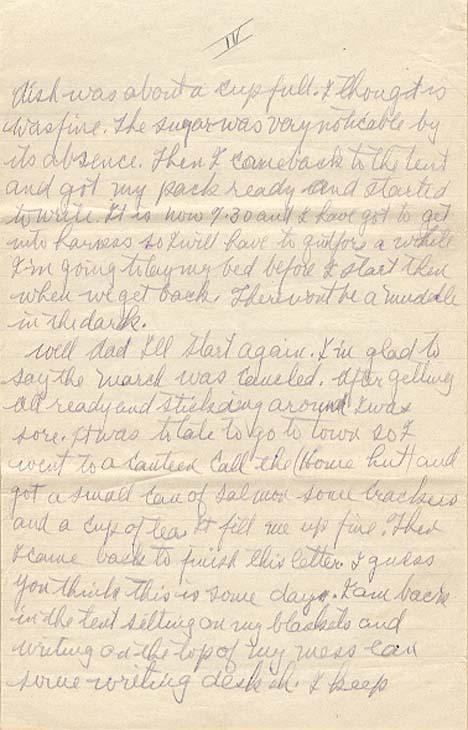 IV
dish was about a cup full. I thought is
was fine. The sugar was very noticable by
its absence. Then I come back to the tent
and got my pack ready and started
to write. It is now 7-30 and I have got to get
into harness so I will have to quit for a while
I'm going to lay my bed before I start then
when we get back. There wont be a muddle
in the dark.
well Dad I'll start again. I'm glad to
say the march was canceled. After getting
all ready and sticking around I was
sore. It was to late to go to town so I
went to a canteen call the (Home hut) and
got a small can of salmon some crackers
and a cup of tea. It fill me up fine. Then
I came back to finish this letter I guess
you think this is some day. I am back
in the tent setting on my blankets and
writing on the top of my mess can
some writing desk eh. I keep